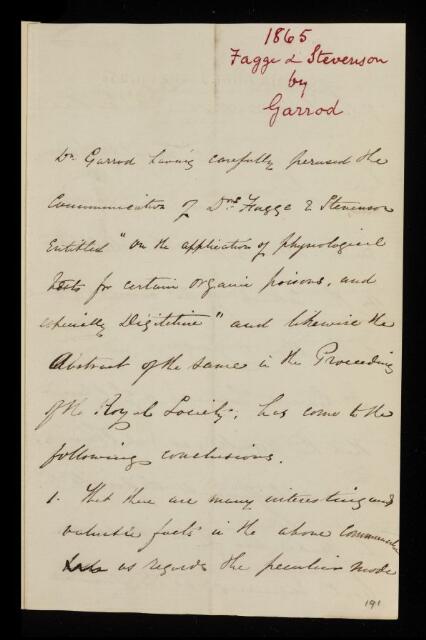 1865
Fagge & Stevenson
by
Garrod
Dr. Garrod having carefully perused the
Communication of Drs. Fagge & Stevenson
Entitled "On the application of physiological
tests for certain organic poisons, and
especially Digitaline" and likewise the
Abstract of the same in the Proceedings
of the Royal Society, has come to the
following conclusions.
1. That there are many interesting and
valuable facts in the above Communication
as regards the peculiar mode
191